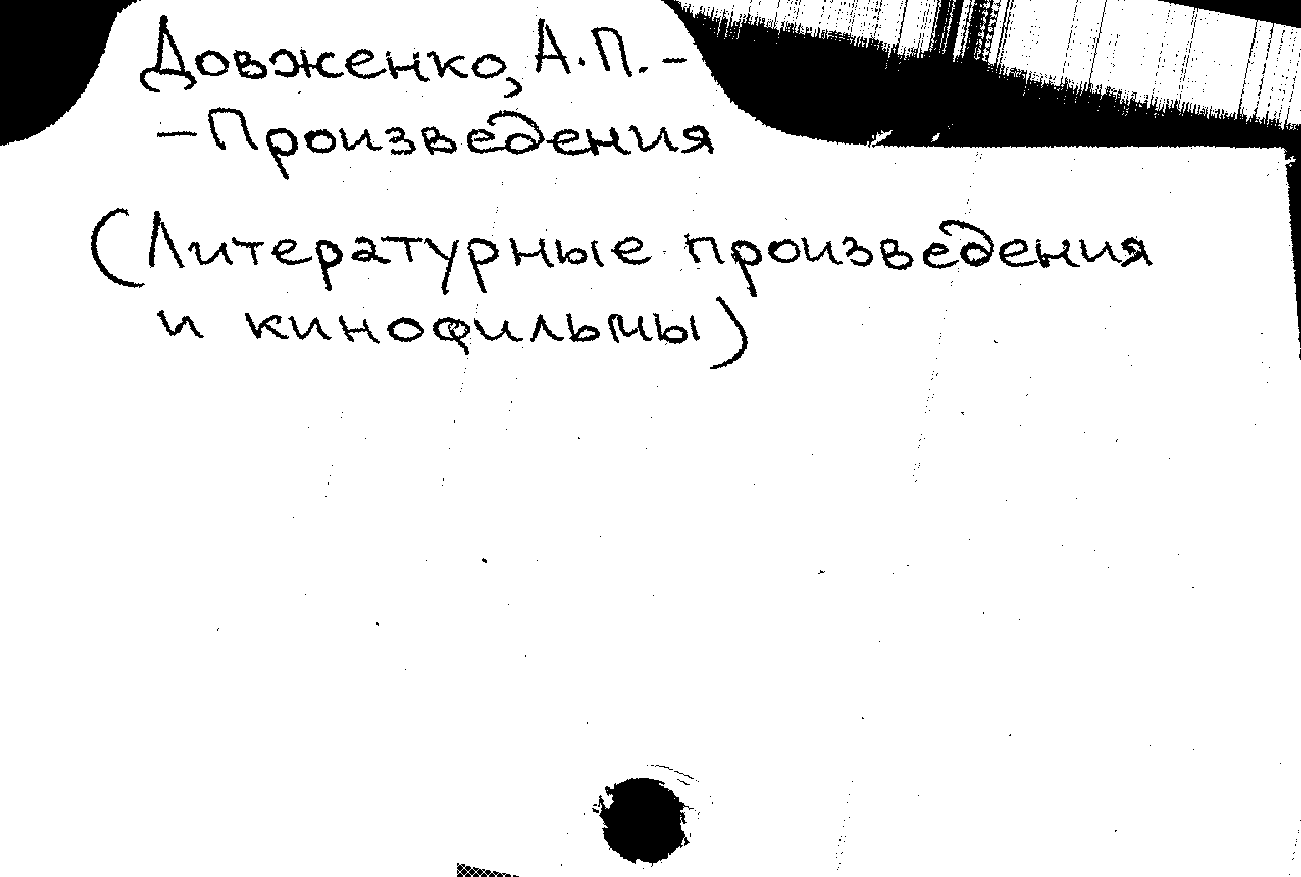 Довженко, А.П. –
– Произведения
(Литературные произведения
и кинофильмы)